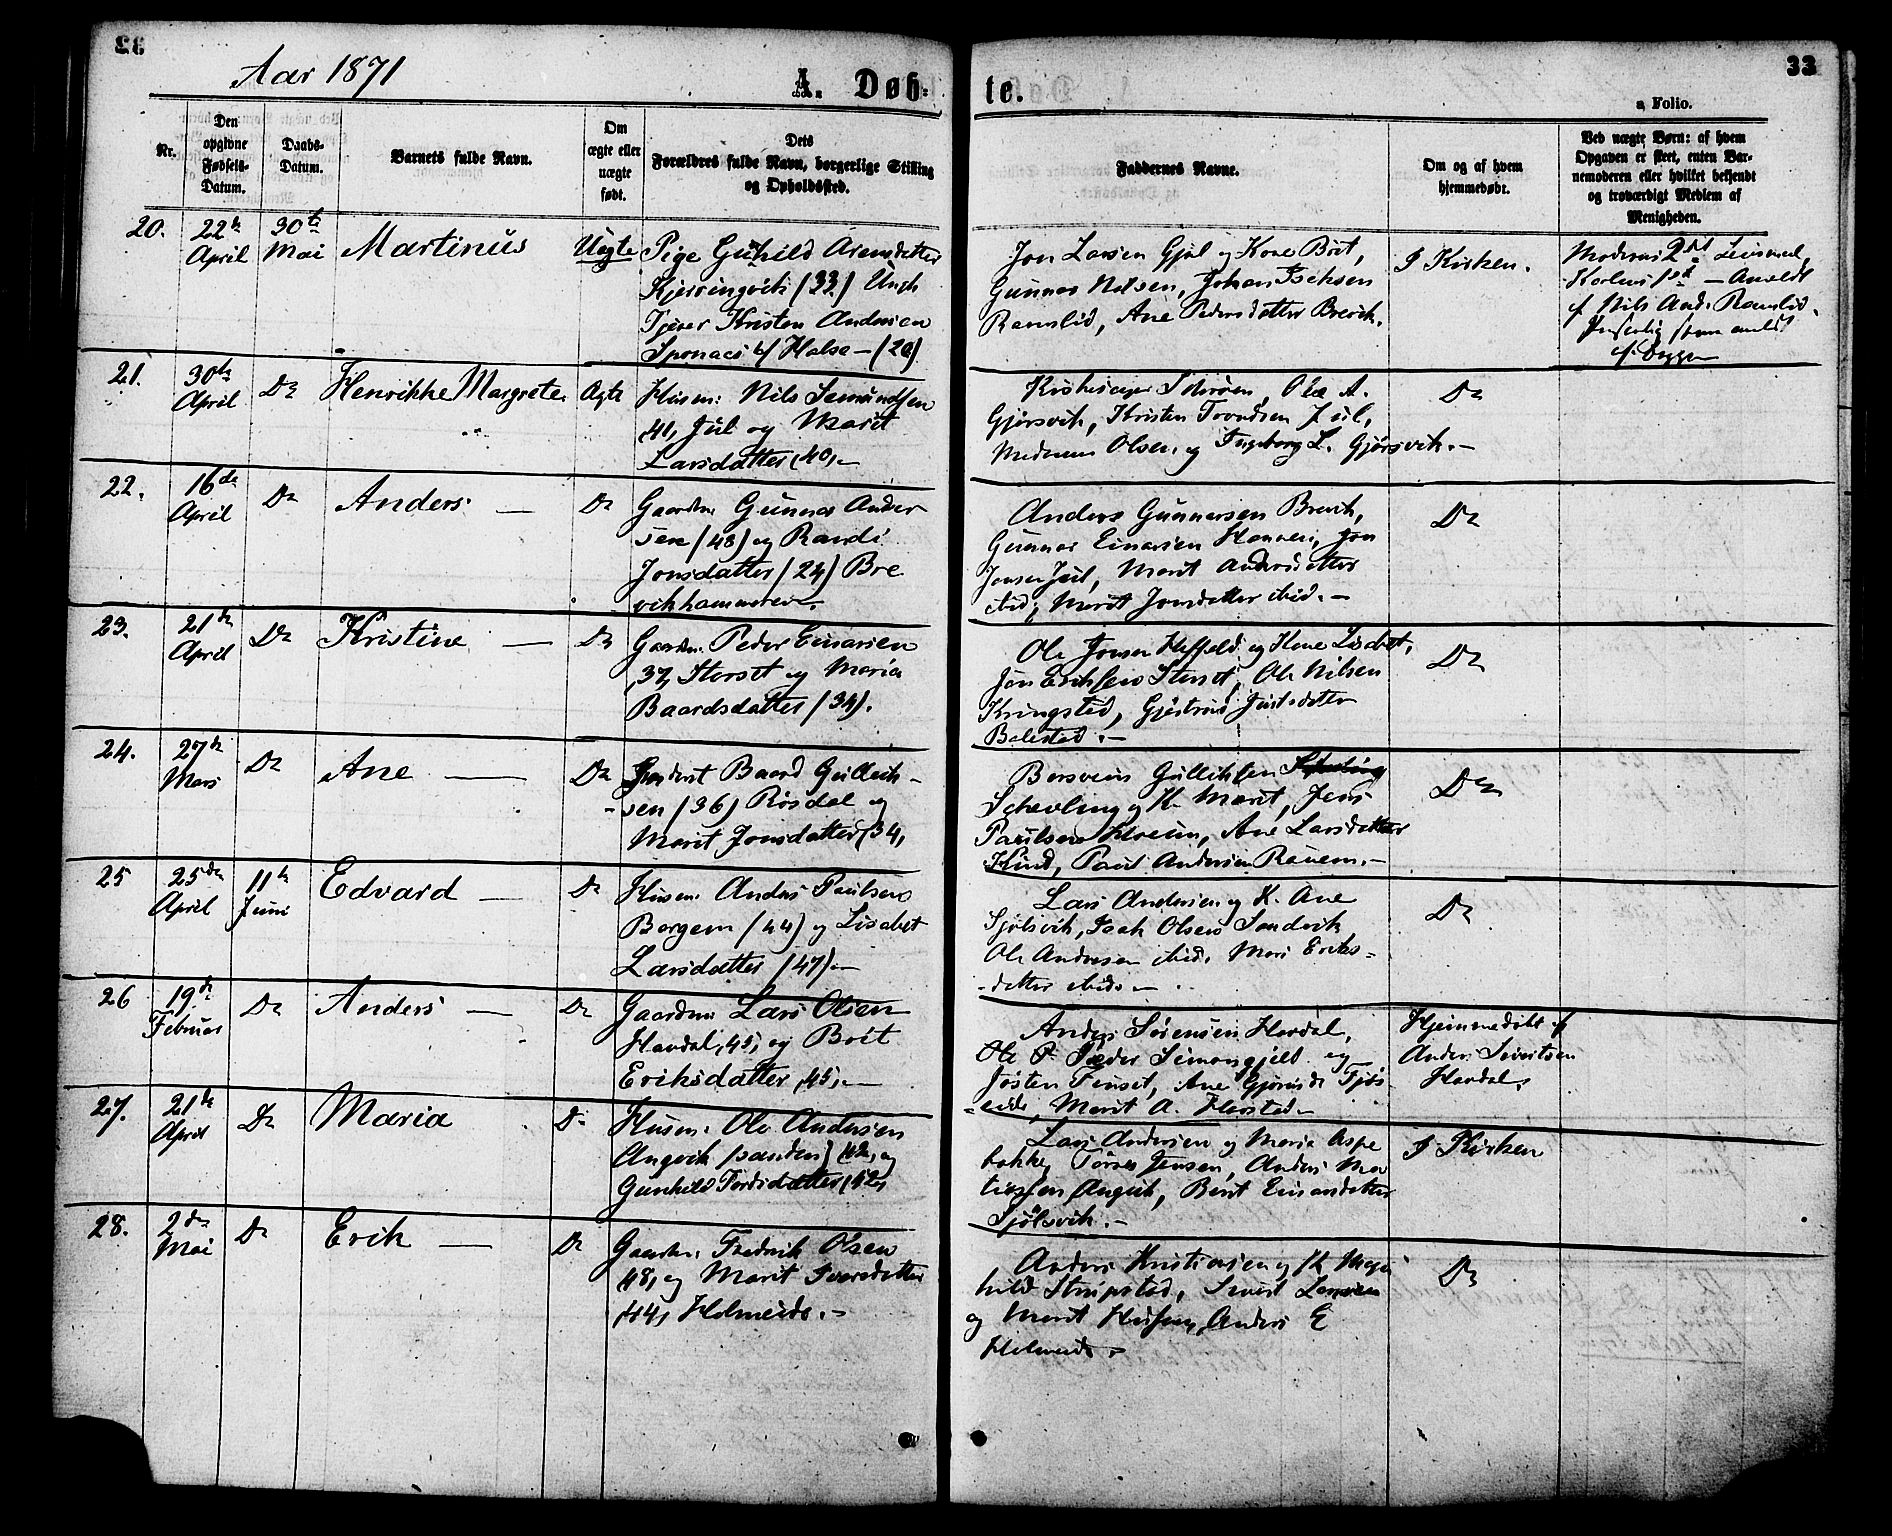 33
Aar 1871
A. Døb-
te.
33
a Folio.
Nr.
Den opgivne Fødsels-Datum.
Daabs-Datum.
Barnets fulde Navn.
Om ægte eller uægte født.
Dets Forældres fulde Navn, borgerlige Stilling og Opholdssted.
Faddernes Navne.
Om og af hvem hjemmedøbt.
Ved uægte Børn: af hvem Opgaven er skeet, enten Barnemoderen eller hvilket bekjendt og troværdigt Medlem af Menigheden.
20.
22de April
30te Mai
Martinus
Uægte
Pige Gunhild Arensdatter
Kjerringvik (33) Ungk
Tjener Kristen Andersen
/ Halse — (20)
Jon Larsen Gjøl og Kone Brit,
Gunnar Nilsen, Johan
Ramslid, Ane Pedersdatter Brevik.
I Kirken.
Moderens 2det Leiermaal,
Karlens 1ste — Anmeldt
f Nils And. Ramslid.
21.
30te April
Do
Henrikke Margrete.
Ægte
Husm: Nils Semundsen
41, Jul og Marit
Larsdatter, 40, —
Kirkesanger Ole A.
Gjørsvik, Kristen Trondsen Jul,
Olsen, og Ingeborg L. Gjørsvik. —
Do
22.
16de April
Do
Anders —
Do
Gaardm Gunnar Ander
sen (48) og Randi
Jonsdatter (24) Bre
vikhammeren.
Anders Gunnarsen Brevik,
Gunnar Einarsen Hanset, Jon
Jonsen Jul, Marit Andersdatter
ibid, Marit Jonsdatter ibid. —
Do
23.
21de April
Do
Kristine —
Do
Gaardm. Peder Einarsen
37, Storset og Maria
Baardsdatter (34).
Ole Jonsen og Kone Lisabet,
Jon Eriksen Storset, Ole Nilsen
Kringsted,
Bolestad. —
Do
24.
27de Mars
Do
Ane —
Do
Baard Gullik-
-sen (36) Røsdal og
Marit Jonsdatter (34,
Gulliksen
Schevling og K. Marit, Jens
Paulsen Ane Larsdatter
Paul Andersen —
Do
25
25de April
11te Juni
Edvard —
Do
Husm: Anders Paulsen
Borgen (44) og Lisabet
Larsdatter (47) —
Lars Andersen og K. Ane
Sjølsvik, Isak Olsen Sandvik
Ole Andersen ibid. Mari Eriks-
-datter ibid. —
Do
26
19de Februar
Do
Anders —
Do
Gaardm: Lars Olsen
Havdal, 45, og Brit
Eriksdatter, 45, —
Anders Sørensen Havdal,
Ole P. og
Jøsten Tinset, Ane
Marit A. Harstad —
Hjemmedøbt af
Anders Sivertsen
Havdal.
27.
21de April
Do
Maria
Do
Husm. Ole Andersen
Angvik (sanden) (42, og
Gunhild Tordsdatter, 42,
Lars Andersen og Marie Aspe
bakke, Tørres Jensen, Anders Ma
tiessen Angvik, Berit Einarsdatter
Sjølsvik. —
I Kirken
28.
2den Mai
Do
Erik —
Do
Gaardm: Fredrik Olsen
48, og Marit Iversdatter
44, Holmeide. —
Anders Kristiansen og K. Magn
hild Stripstad, Sivert Larsen
og Marit Anders E
Holmeide. —
Do